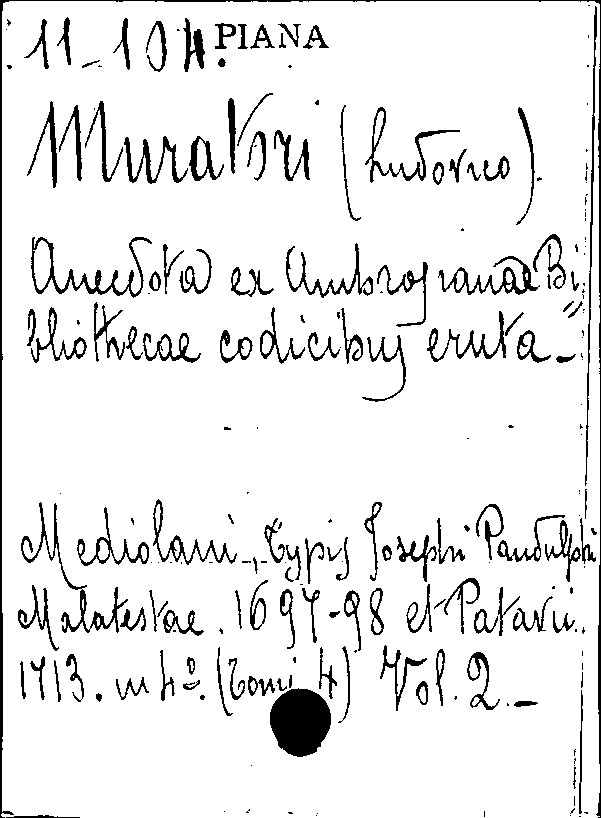 11-10 4. PIANA
Muratori (Ludovico).
Anecdota ex Ambrogianae Bi,,
bliothecae codicibus eruta-
Mediolani, Typis Josephi Pandulphi
Malatestae. 1697-98 et Patavii.
1713. in 4º. (Tomi 4) Vol. 2.-